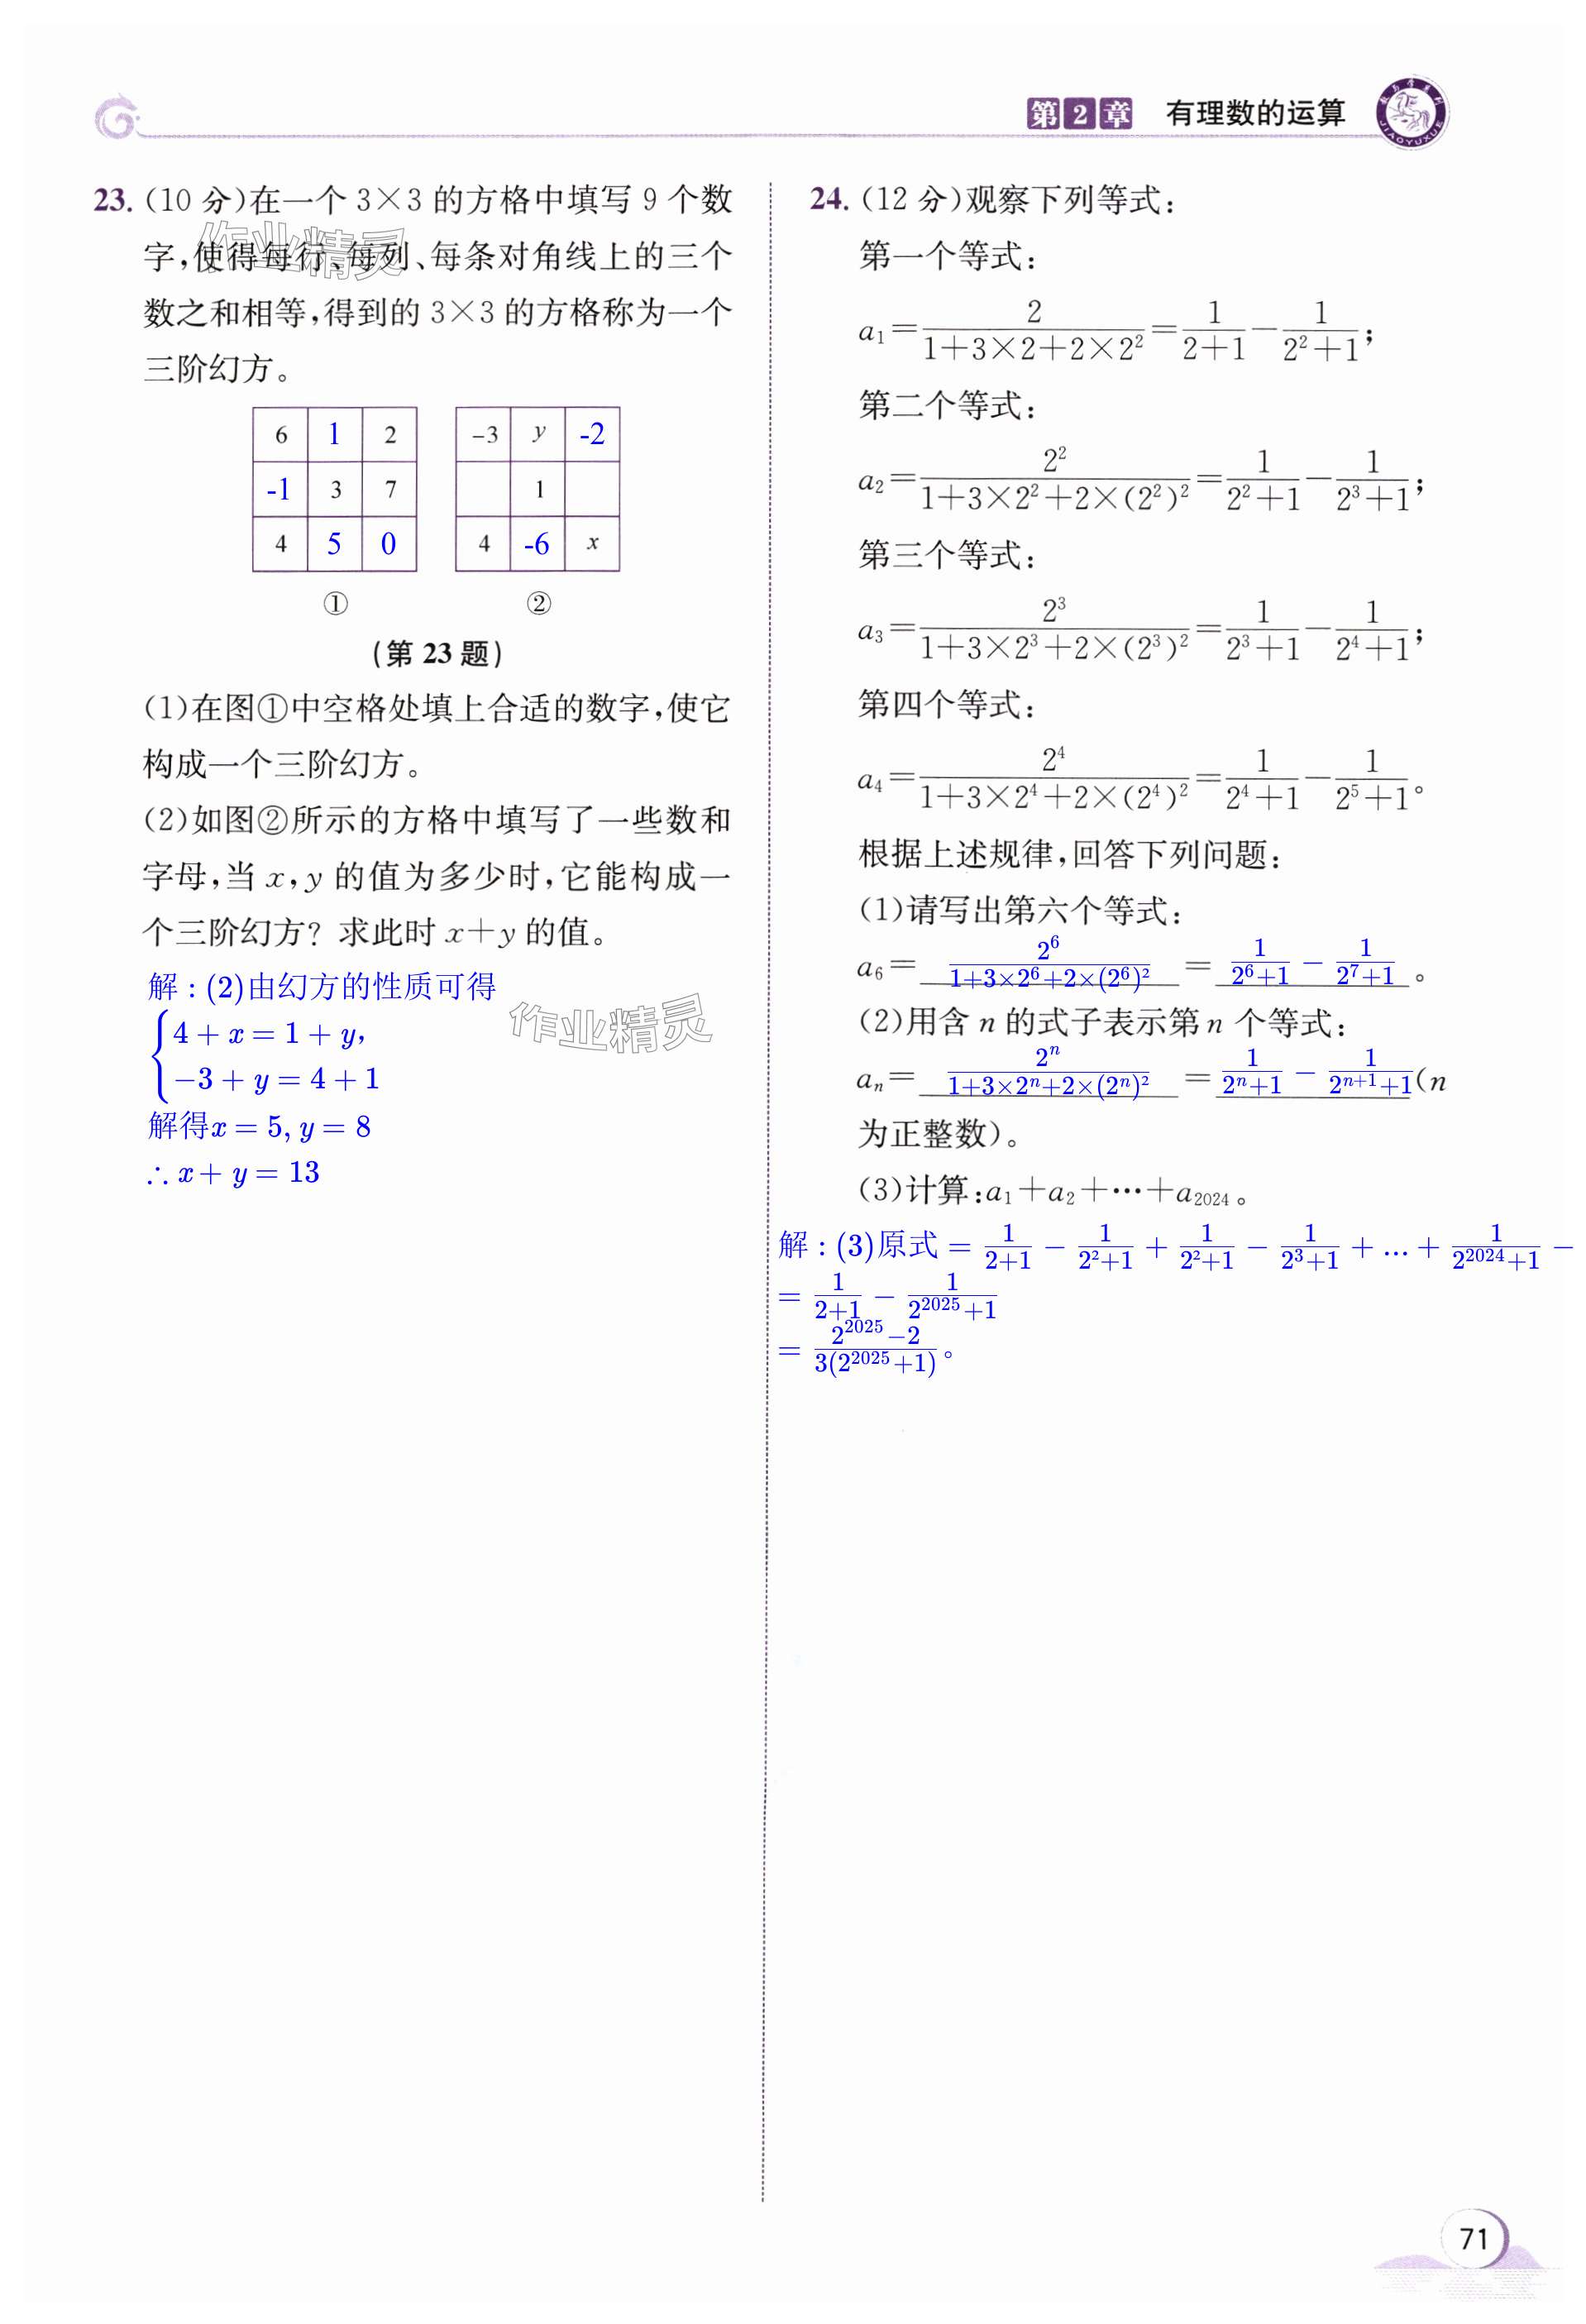 第2章 有理数的运算
JIAOYUXUE
23.(10 分)在一个 3×3 的方格中填写 9 个数
字,使得每行、每列、每条对角线上的三个
数之和相等,得到的 3×3 的方格称为一个
三阶幻方。
作业精灵
6 1 2
-1 3 7
4 5 0
①
-3 y -2
1
4 -6 x
②
(第 23 题)
(1)在图①中空格处填上合适的数字,使它
构成一个三阶幻方。
(2)如图②所示的方格中填写了一些数和
字母,当 x,y 的值为多少时,它能构成一
个三阶幻方? 求此时 x+y 的值。
解:(2)由幻方的性质可得
{4+x=1+y,
-3+y=4+1
解得x=5,y=8
∴x+y=13
作业精灵
24.(12 分)观察下列等式:
第一个等式:
a₁=2/(1+3×2+2×2²)=1/(2+1)-1/(2²+1);
第二个等式:
a₂=2²/(1+3×2²+2×(2²)²)=1/(2²+1)-1/(2³+1);
第三个等式:
a₃=2³/(1+3×2³+2×(2³)²)=1/(2³+1)-1/(2⁴+1);
第四个等式:
a₄=2⁴/(1+3×2⁴+2×(2⁴)²)=1/(2⁴+1)-1/(2⁵+1)。
根据上述规律,回答下列问题:
(1)请写出第六个等式:
a₆=2⁶/(1+3×2⁶+2×(2⁶)²)=1/(2⁶+1)-1/(2⁷+1)。
(2)用含 n 的式子表示第 n 个等式:
aₙ=2ⁿ/(1+3×2ⁿ+2×(2ⁿ)²)=1/(2ⁿ+1)-1/(2ⁿ⁺¹+1)(n
为正整数)。
(3)计算:a₁+a₂+…+a₂₀₂₄。
解:(3)原式=1/(2+1)-1/(2²+1)+1/(2²+1)-1/(2³+1)+...+1/(2²⁰²⁴+1)-
=1/(2+1)-1/(2²⁰²⁵+1)
=(2²⁰²⁵-2)/(3(2²⁰²⁵+1))。
71